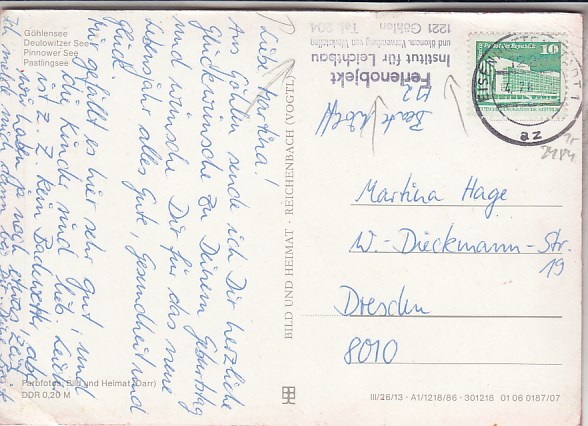 Göhlensee
Deulowitzer See
Pinnower See
Pastlingsee
Liebe Martina!
Aus Göhlen sende ich Dir herzliche
Glückwünsche zu Deinem Geburtstag
und wünsche Dir für das neue
Lebensjahr alles Gute, Gesundheit und
Glück.
Mir gefällt es hier sehr gut, und
die Kinder sind lieb. Leider
ist z. Z. kein Badewetter, aber
wir haben ja noch etwas Zeit.
Farbfotos: Bild und Heimat (Darr)
DDR 0,20 M
BILD UND HEIMAT · REICHENBACH (VOGTL)
Ferienobjekt
Institut für Leichtbau
und ökonom. Verwendung von Werkstoffen
1221 Göhlen Tel. 204
Palast der Republik
10
EISENHÜTTENSTADT 1
az
Martina Hage
W.-Dieckmann-Str.
19
Dresden
8010
III/26/13 · A1/1218/86 · 301218 01 06 0187/07